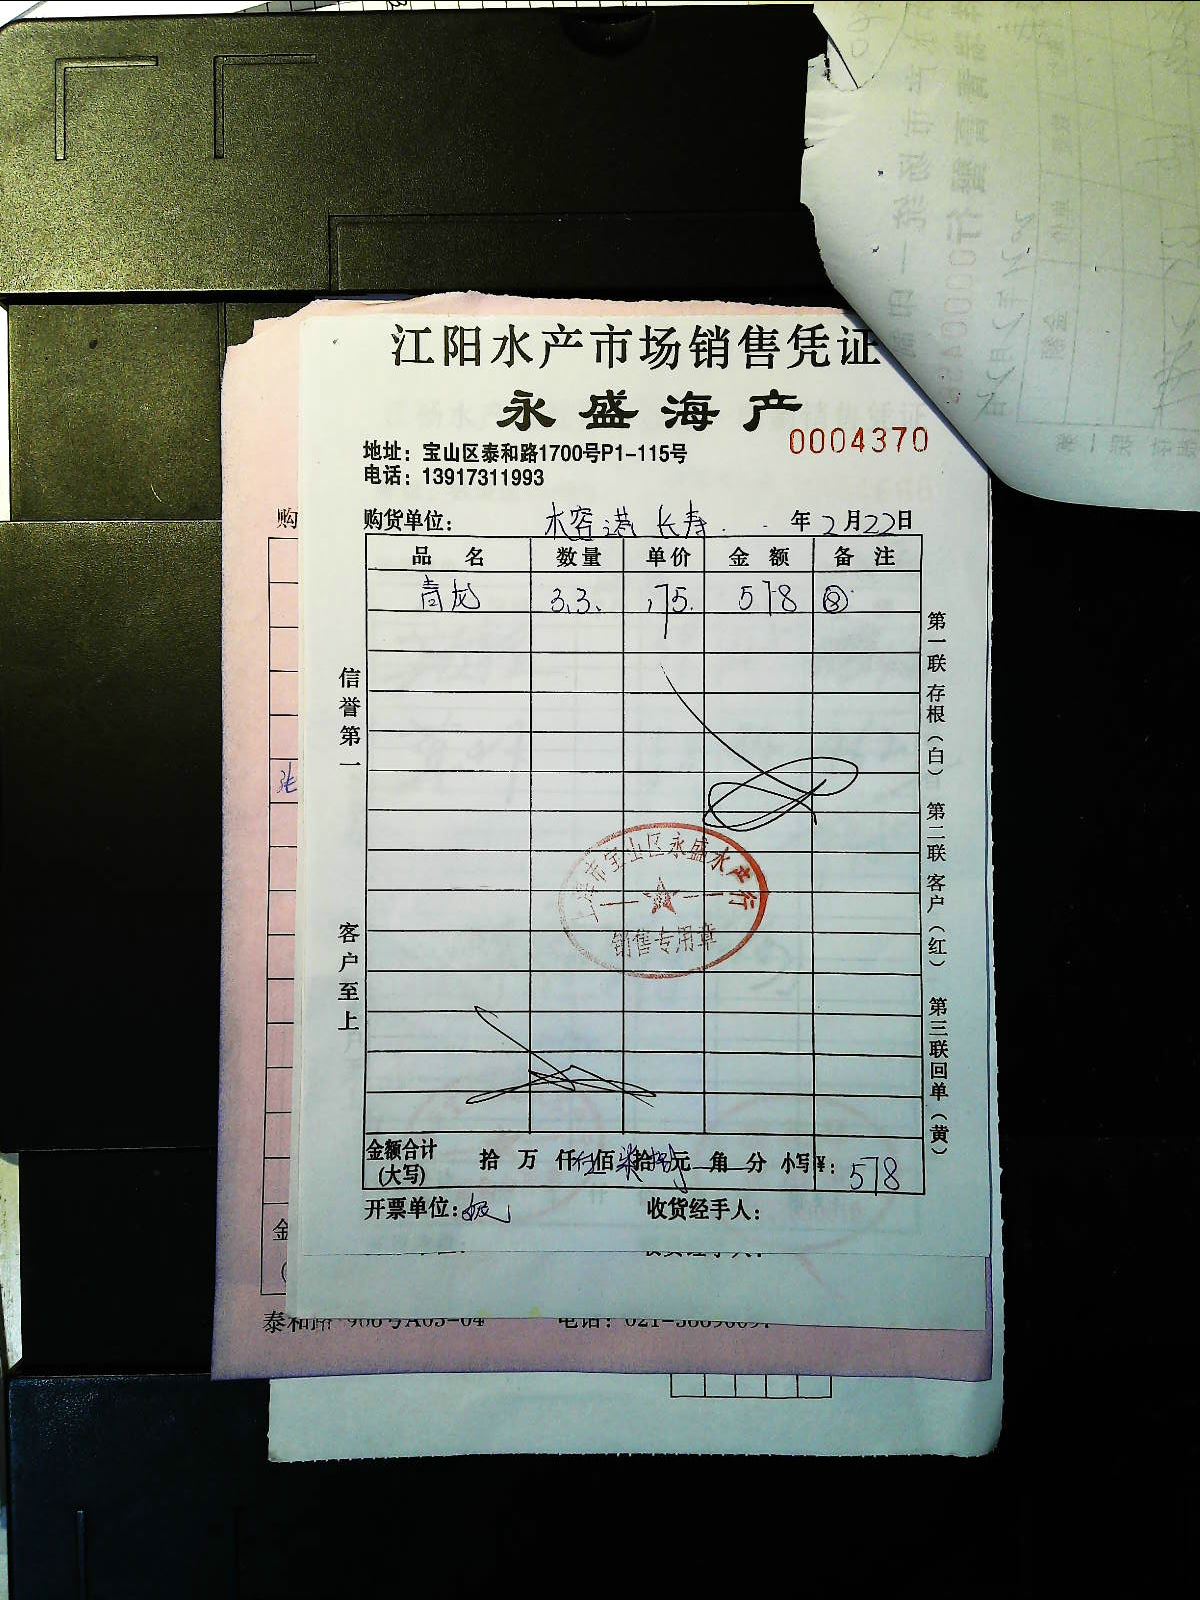 江阳水产市场销售凭证
永盛海产
0004370
地址：宝山区泰和路1700号P1-115号
电话：13917311993
购货单位： 水容港 长寿 年 2 月 22 日
品 名 数量 单价 金 额 备 注
青龙 3.3 175 578 ⑧
信誉第一
客户至上
第一联 存根（白） 第二联 客户（红） 第三联 回单（黄）
上海市宝山区永盛水产行
销售专用章
金额合计(大写) 拾 万 仟 伍 佰 柒 拾 捌 元 角 分 小写¥：578
开票单位： 收货经手人：
购
张
金
泰和路 968号A03-04 电话：021-